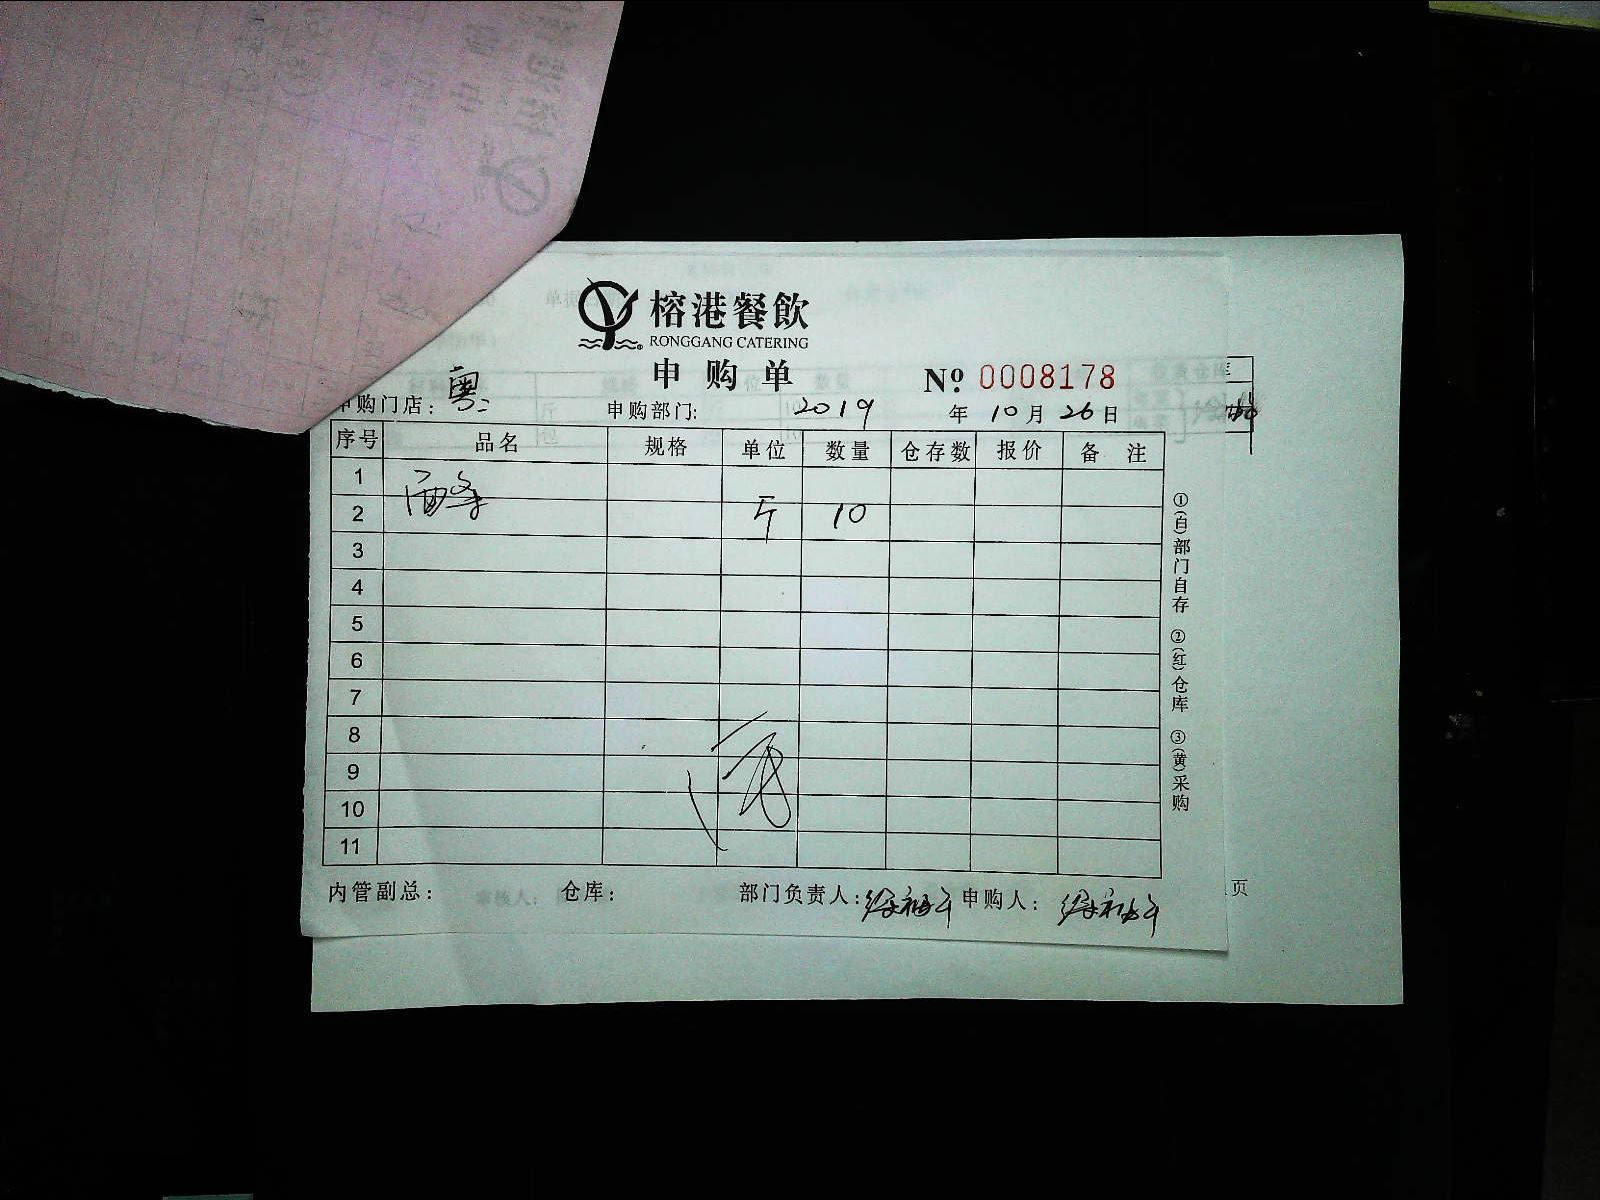 榕港餐飲
RONGGANG CATERING
申购单
№ 0008178
申购门店: 粤二 申购部门: 2019年10月26日
序号 品名 规格 单位 数量 仓存数 报价 备注
1
2 斤 10
3
4
5
6
7
8
9
10
11
内管副总: 仓库: 部门负责人: 申购人:
①(白)部门自存 ②(红)仓库 ③(黄)采购
页